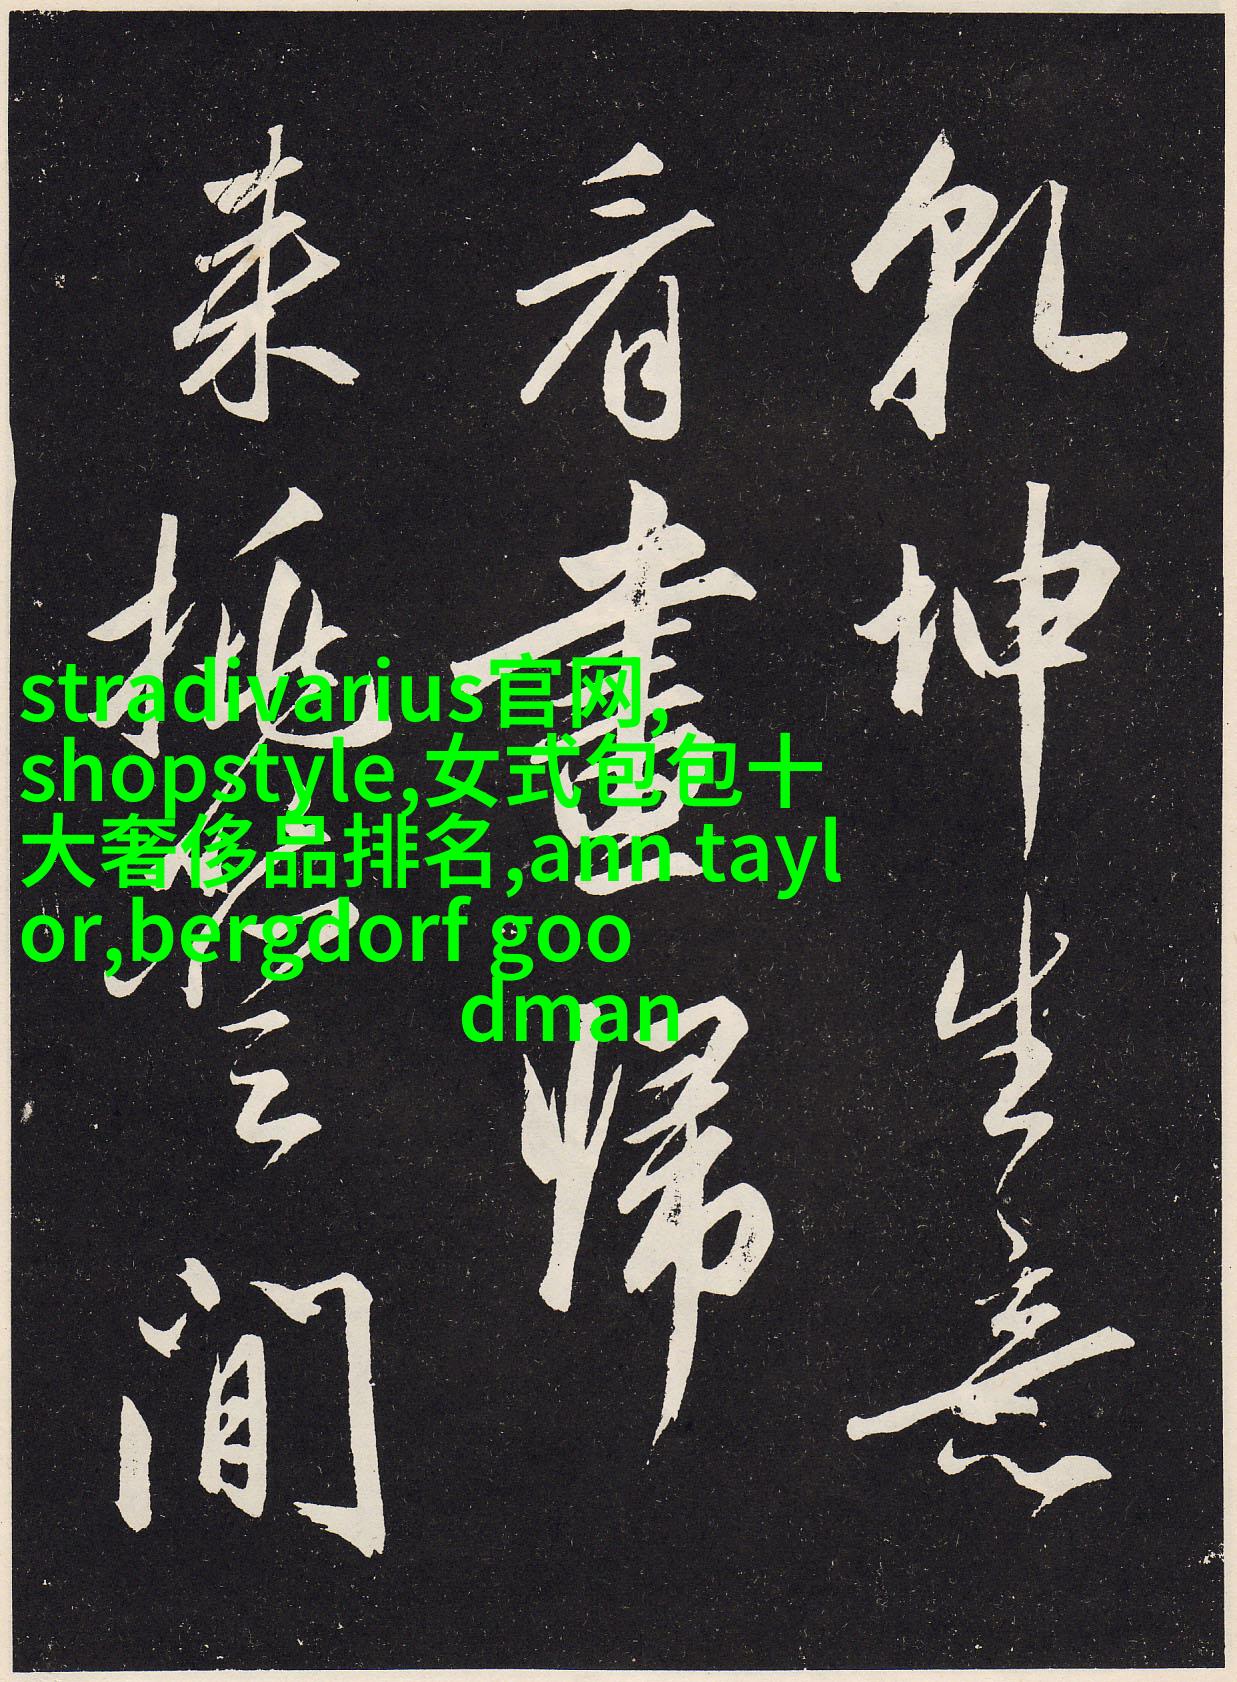 乾坤生意
看畫歸
来挑雲間
stradivarius官网,
shopstyle,女式包包十
大奢侈品排名,ann tayl
or,bergdorf goo
dman